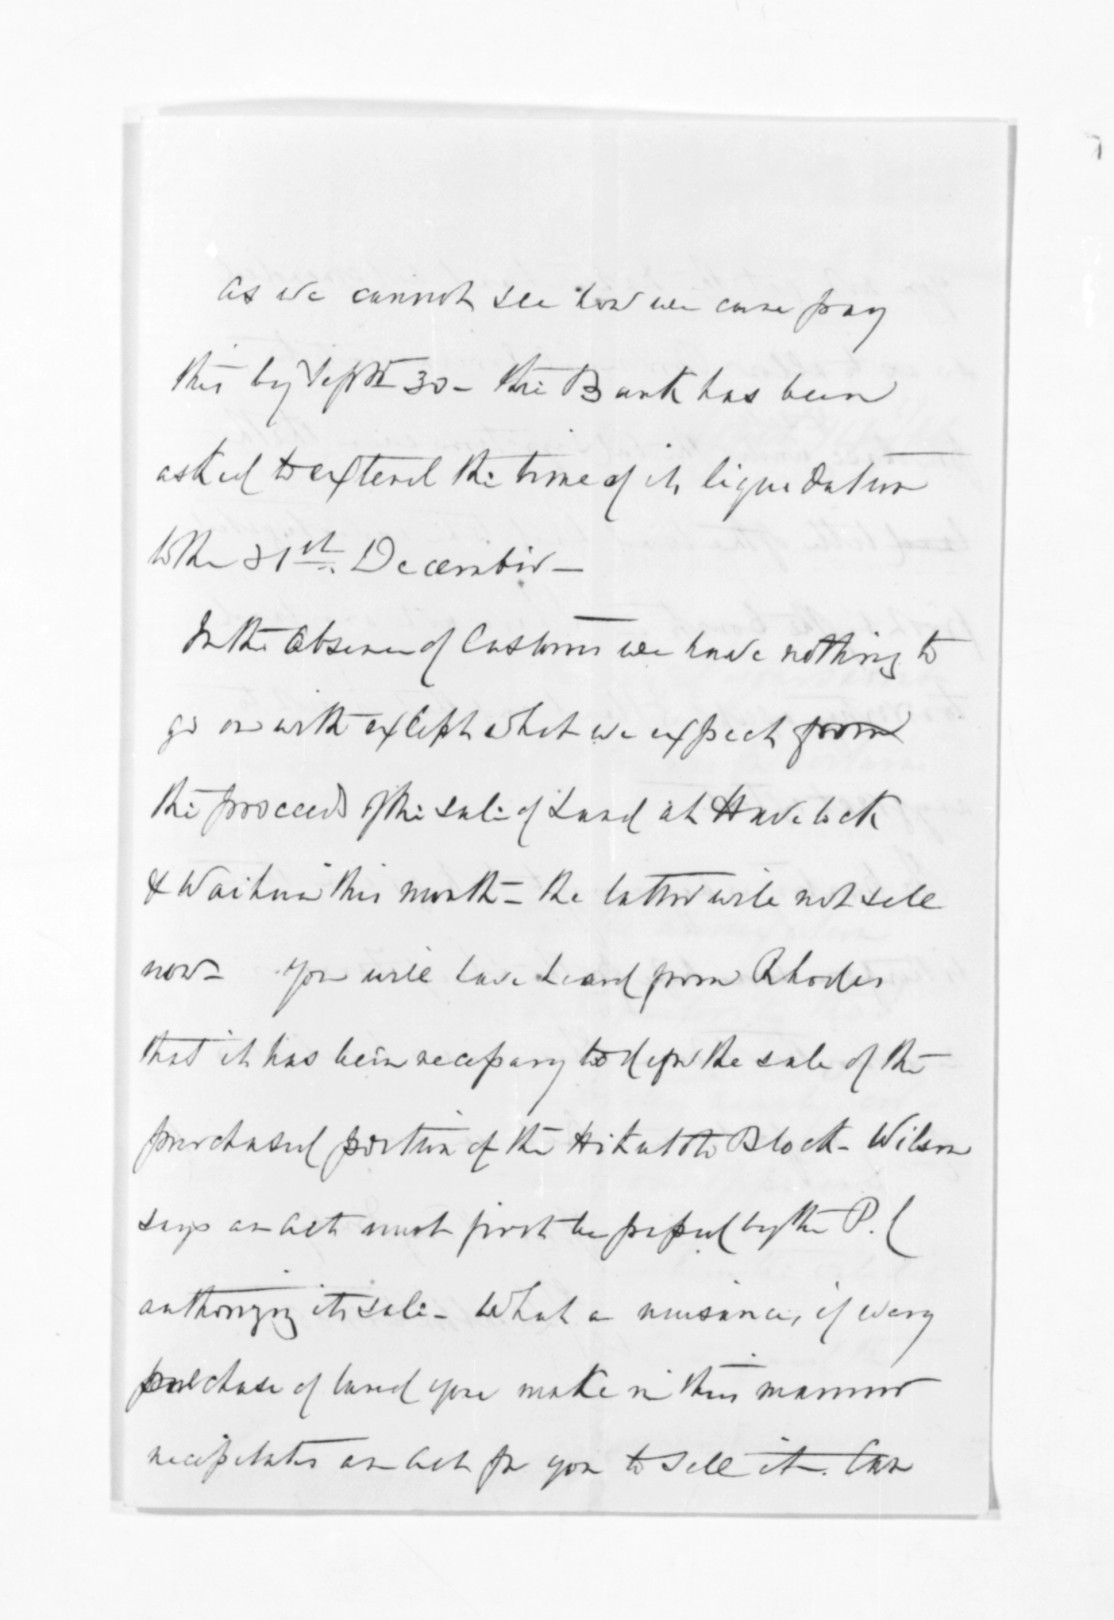 as we cannot see how we can pay
this by Septr 30 - the Bank has been
asked to extend the time of its liquidation
to the 31st. December -
In the absence of Customs we have nothing to
go on with except what we expect from
the proceeds of the sale of Land at Havelock
& Waihua this month - the latter will not sell
now - you will have heard from Rhodes
that it has been necessary to defer the sale of the
purchased portion of the Hikutoto Block - Wilson
says an act must first be passed by the P. C
authorizing its sale - What a nuisance, if every
purchase of land you make in this manner
necessitates an act for you to sell it. Can